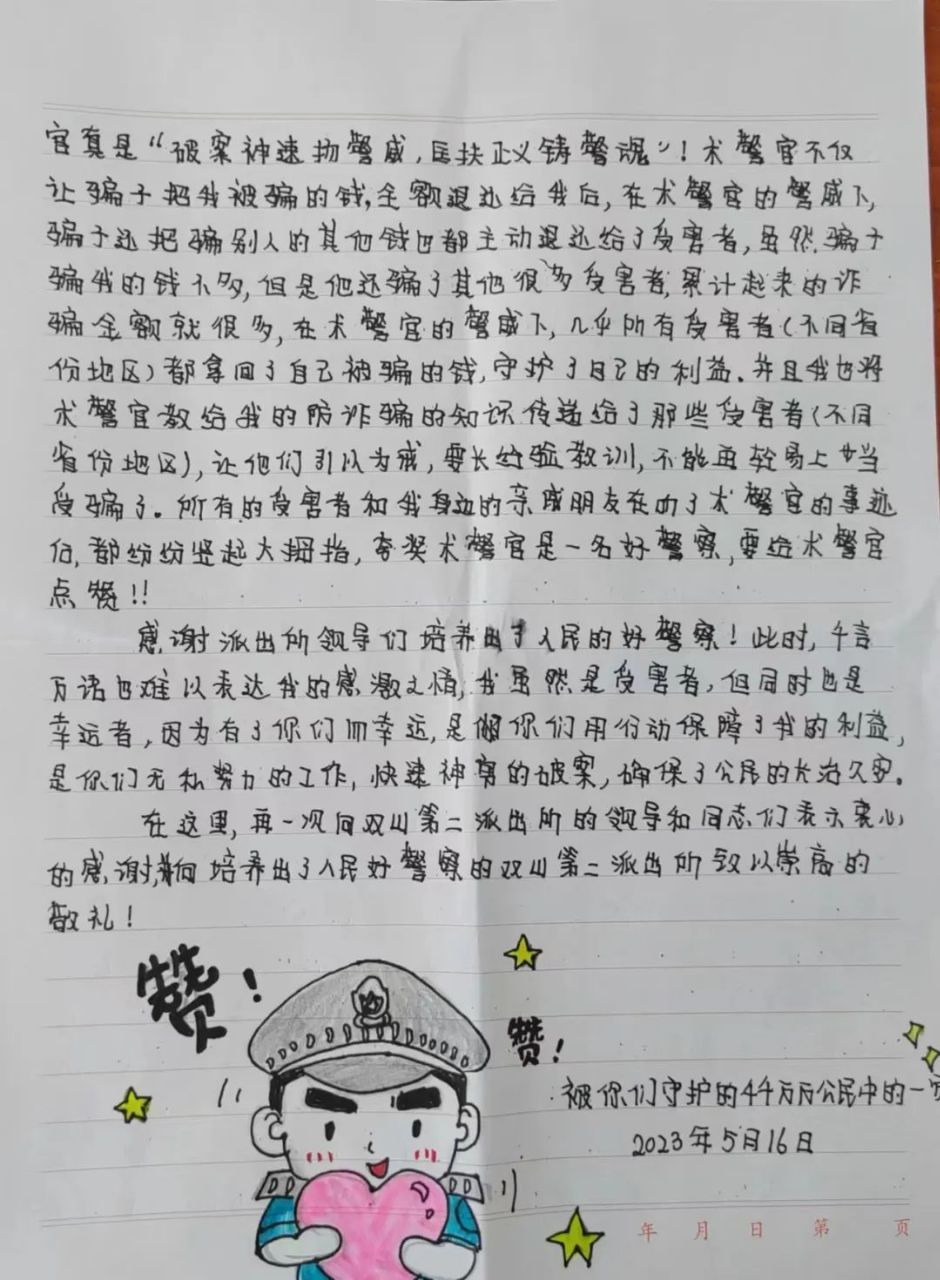 官真是“破案神速扬警威，匡扶正义铸警魂”！术警官不仅
让骗子把我被骗的钱，全额退还给我后，在术警官的警威下，
骗子还把骗别人的其他钱也都主动退还给了受害者，虽然骗子
骗我的钱不多，但是他还骗了其他很多受害者，累计起来的诈
骗金额就很多，在术警官的警威下，几乎所有受害者（不同省
份地区）都拿回了自己被骗的钱，守护了自己的利益。并且我也将
术警官教给我的防诈骗的知识传递给了那些受害者（不同
省份地区），让他们引以为戒，要长经验教训，不能再轻易上当
受骗了。所有的受害者和我身边的亲戚朋友在听了术警官的事迹
后，都纷纷竖起大拇指，夸奖术警官是一名好警察，要给术警官
点赞！！
感谢派出所领导们培养出了人民的好警察！此时，千言
万语也难以表达我的感激之情，我虽然是受害者，但同时也是
幸运者，因为有了你们而幸运，是你们用行动保障了我的利益，
是你们无私努力的工作，快速神勇的破案，确保了公民的长治久安。
在这里，再一次向双山第二派出所的领导和同志们表示衷心
的感谢，并向培养出了人民好警察的双山第二派出所致以崇高的
敬礼！
赞！
赞！
被你们守护的千千万万公民中的一
2023年5月16日
年 月 日 第 页